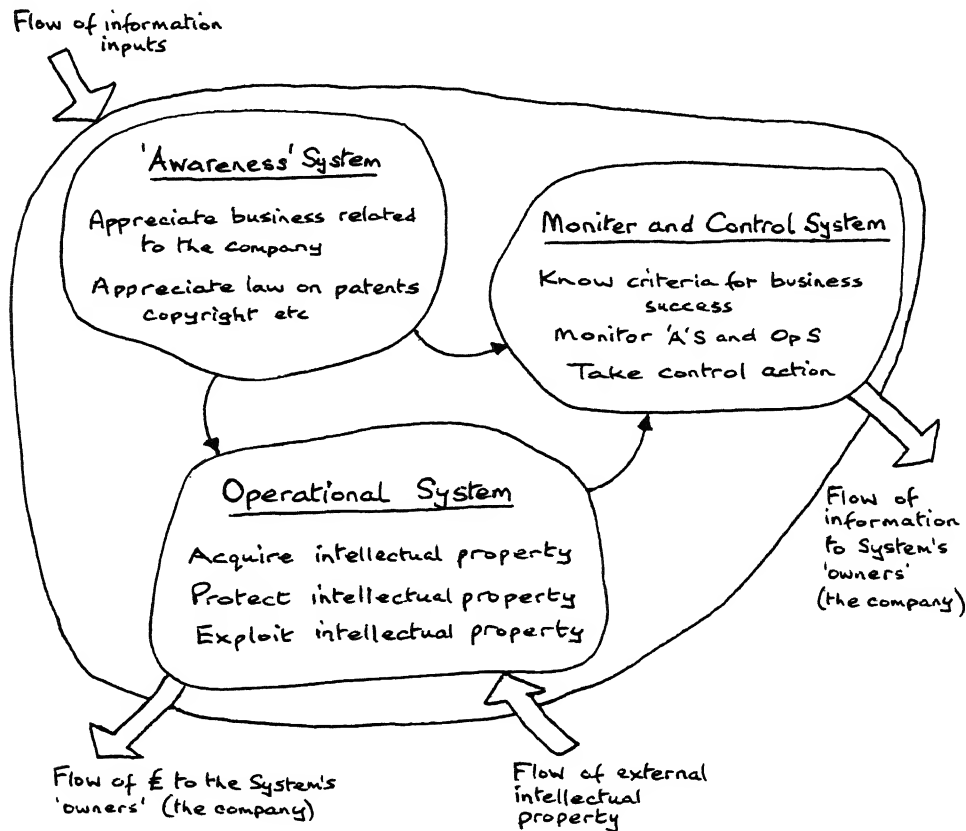 Flow of information
inputs
'Awareness' System
Appreciate business related
to the company
Appreciate law on patents
copyright etc
Moniter and Control System
Know criteria for business
success
Moniter 'A'S and OpS
Take control action
Operational System
Acquire intellectual property
Protect intellectual property
Exploit intellectual property
Flow of
information
to System's
'owners'
(the company)
Flow of £ to the System's
'owners' (the company)
Flow of external
intellectual
property